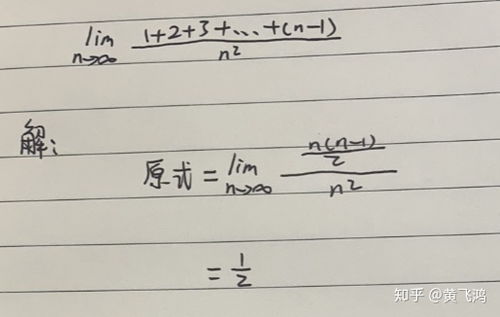 lim n→∞ 1+2+3+...+(n-1) / n²
解:
原式 = lim n→∞ (n(n-1)/2) / n²
= 1/2
知乎 @黄飞鸿